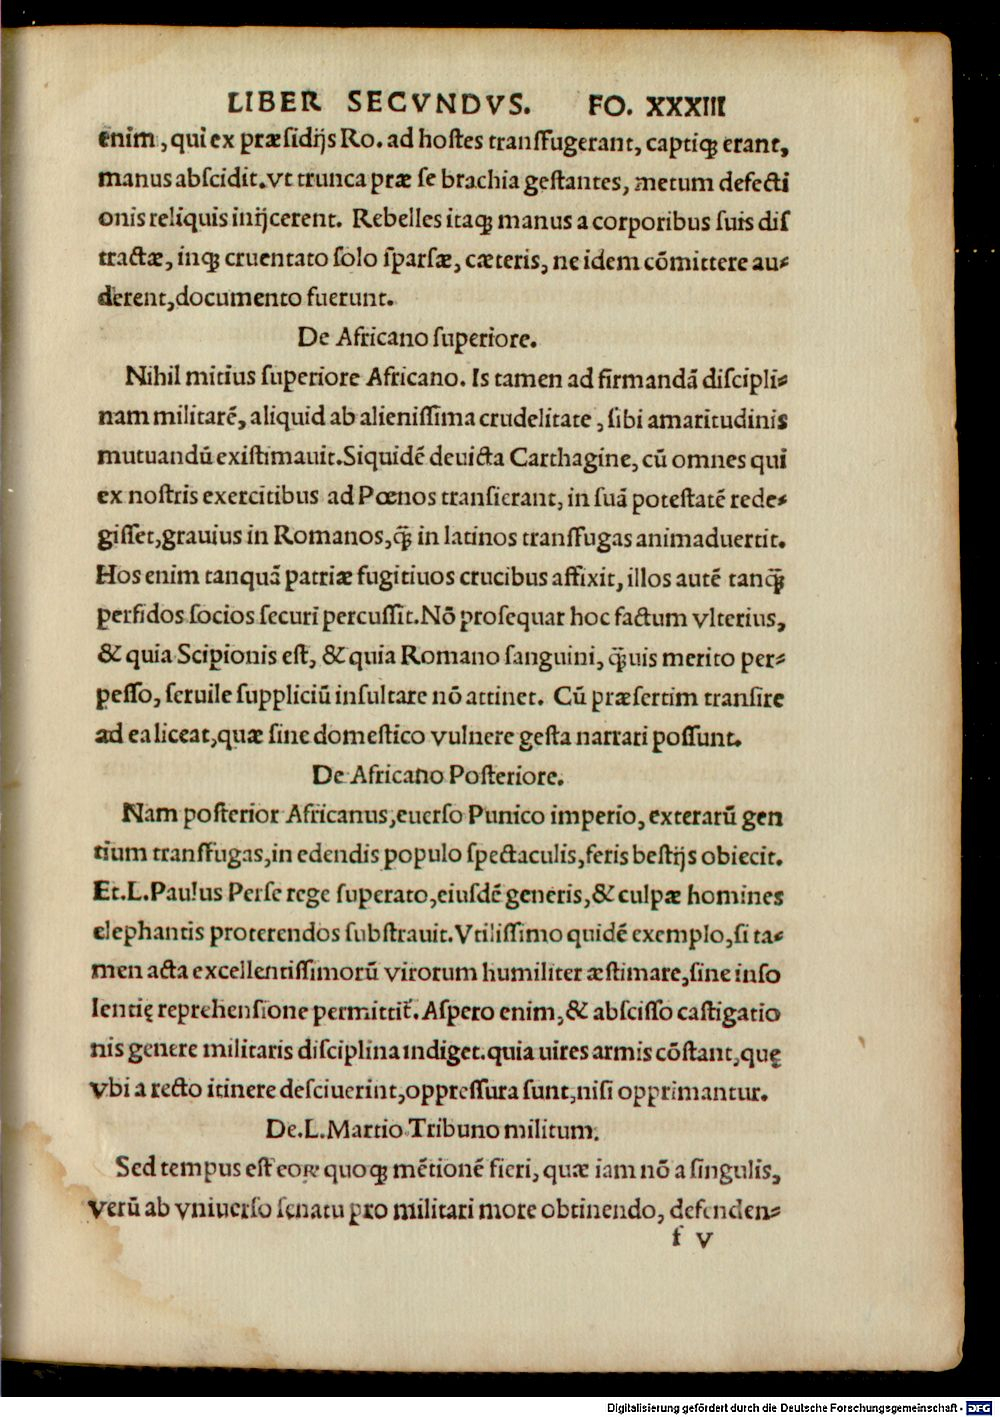 LIBER SECVNDVS. FO. XXXIII
enim, qui ex præsidijs Ro. ad hostes transfugerant, captiq; erant,
manus abscidit. vt trunca præ se brachia gestantes, metum defecti
onis reliquis inijcerent. Rebelles itaq; manus a corporibus suis dis
tractæ, inq; cruentato solo sparsæ, cæteris, ne idem cōmittere au-
derent, documento fuerunt.
De Africano superiore.
Nihil mitius superiore Africano. Is tamen ad firmandā discipli-
nam militarē, aliquid ab alienissima crudelitate, sibi amaritudinis
mutuandū existimauit. Siquidē deuicta Carthagine, cū omnes qui
ex nostris exercitibus ad Pœnos transierant, in suā potestatē rede-
gisset, grauius in Romanos, q̄ȝ in latinos transfugas animaduertit.
Hos enim tanquā patriæ fugitiuos crucibus affixit, illos autē tanq̄ȝ
perfidos socios securi percussit. Nō prosequar hoc factum vlterius,
& quia Scipionis est, & quia Romano sanguini, q̄ȝuis merito per-
pesso, seruile suppliciū insultare nō attinet. Cū præsertim transire
ad ea liceat, quæ sine domestico vulnere gesta narrari possunt.
De Africano Posteriore.
Nam posterior Africanus, euerso Punico imperio, exterarū gen
tium transfugas, in edendis populo spectaculis, feris bestijs obiecit.
Et. L. Paulus Perse rege superato, eiusdē generis, & culpæ homines
elephantis proterendos substrauit. Vtilissimo quidē exemplo, si ta-
men acta excellentissimorū virorum humiliter æstimare, sine inso
lentię reprehensione permittit̃. Aspero enim, & abscisso castigatio
nis genere militaris disciplina indiget. quia uires armis cōstant, quę
vbi a recto itinere desciuerint, oppressura sunt, nisi opprimantur.
De. L. Martio Tribuno militum.
Sed tempus est eoꝝ quoq; mētionē fieri, quæ iam nō a singulis,
verū ab vniuerso senatu pro militari more obtinendo, defenden-
f v
Digitalisierung gefördert durch die Deutsche Forschungsgemeinschaft - DFG